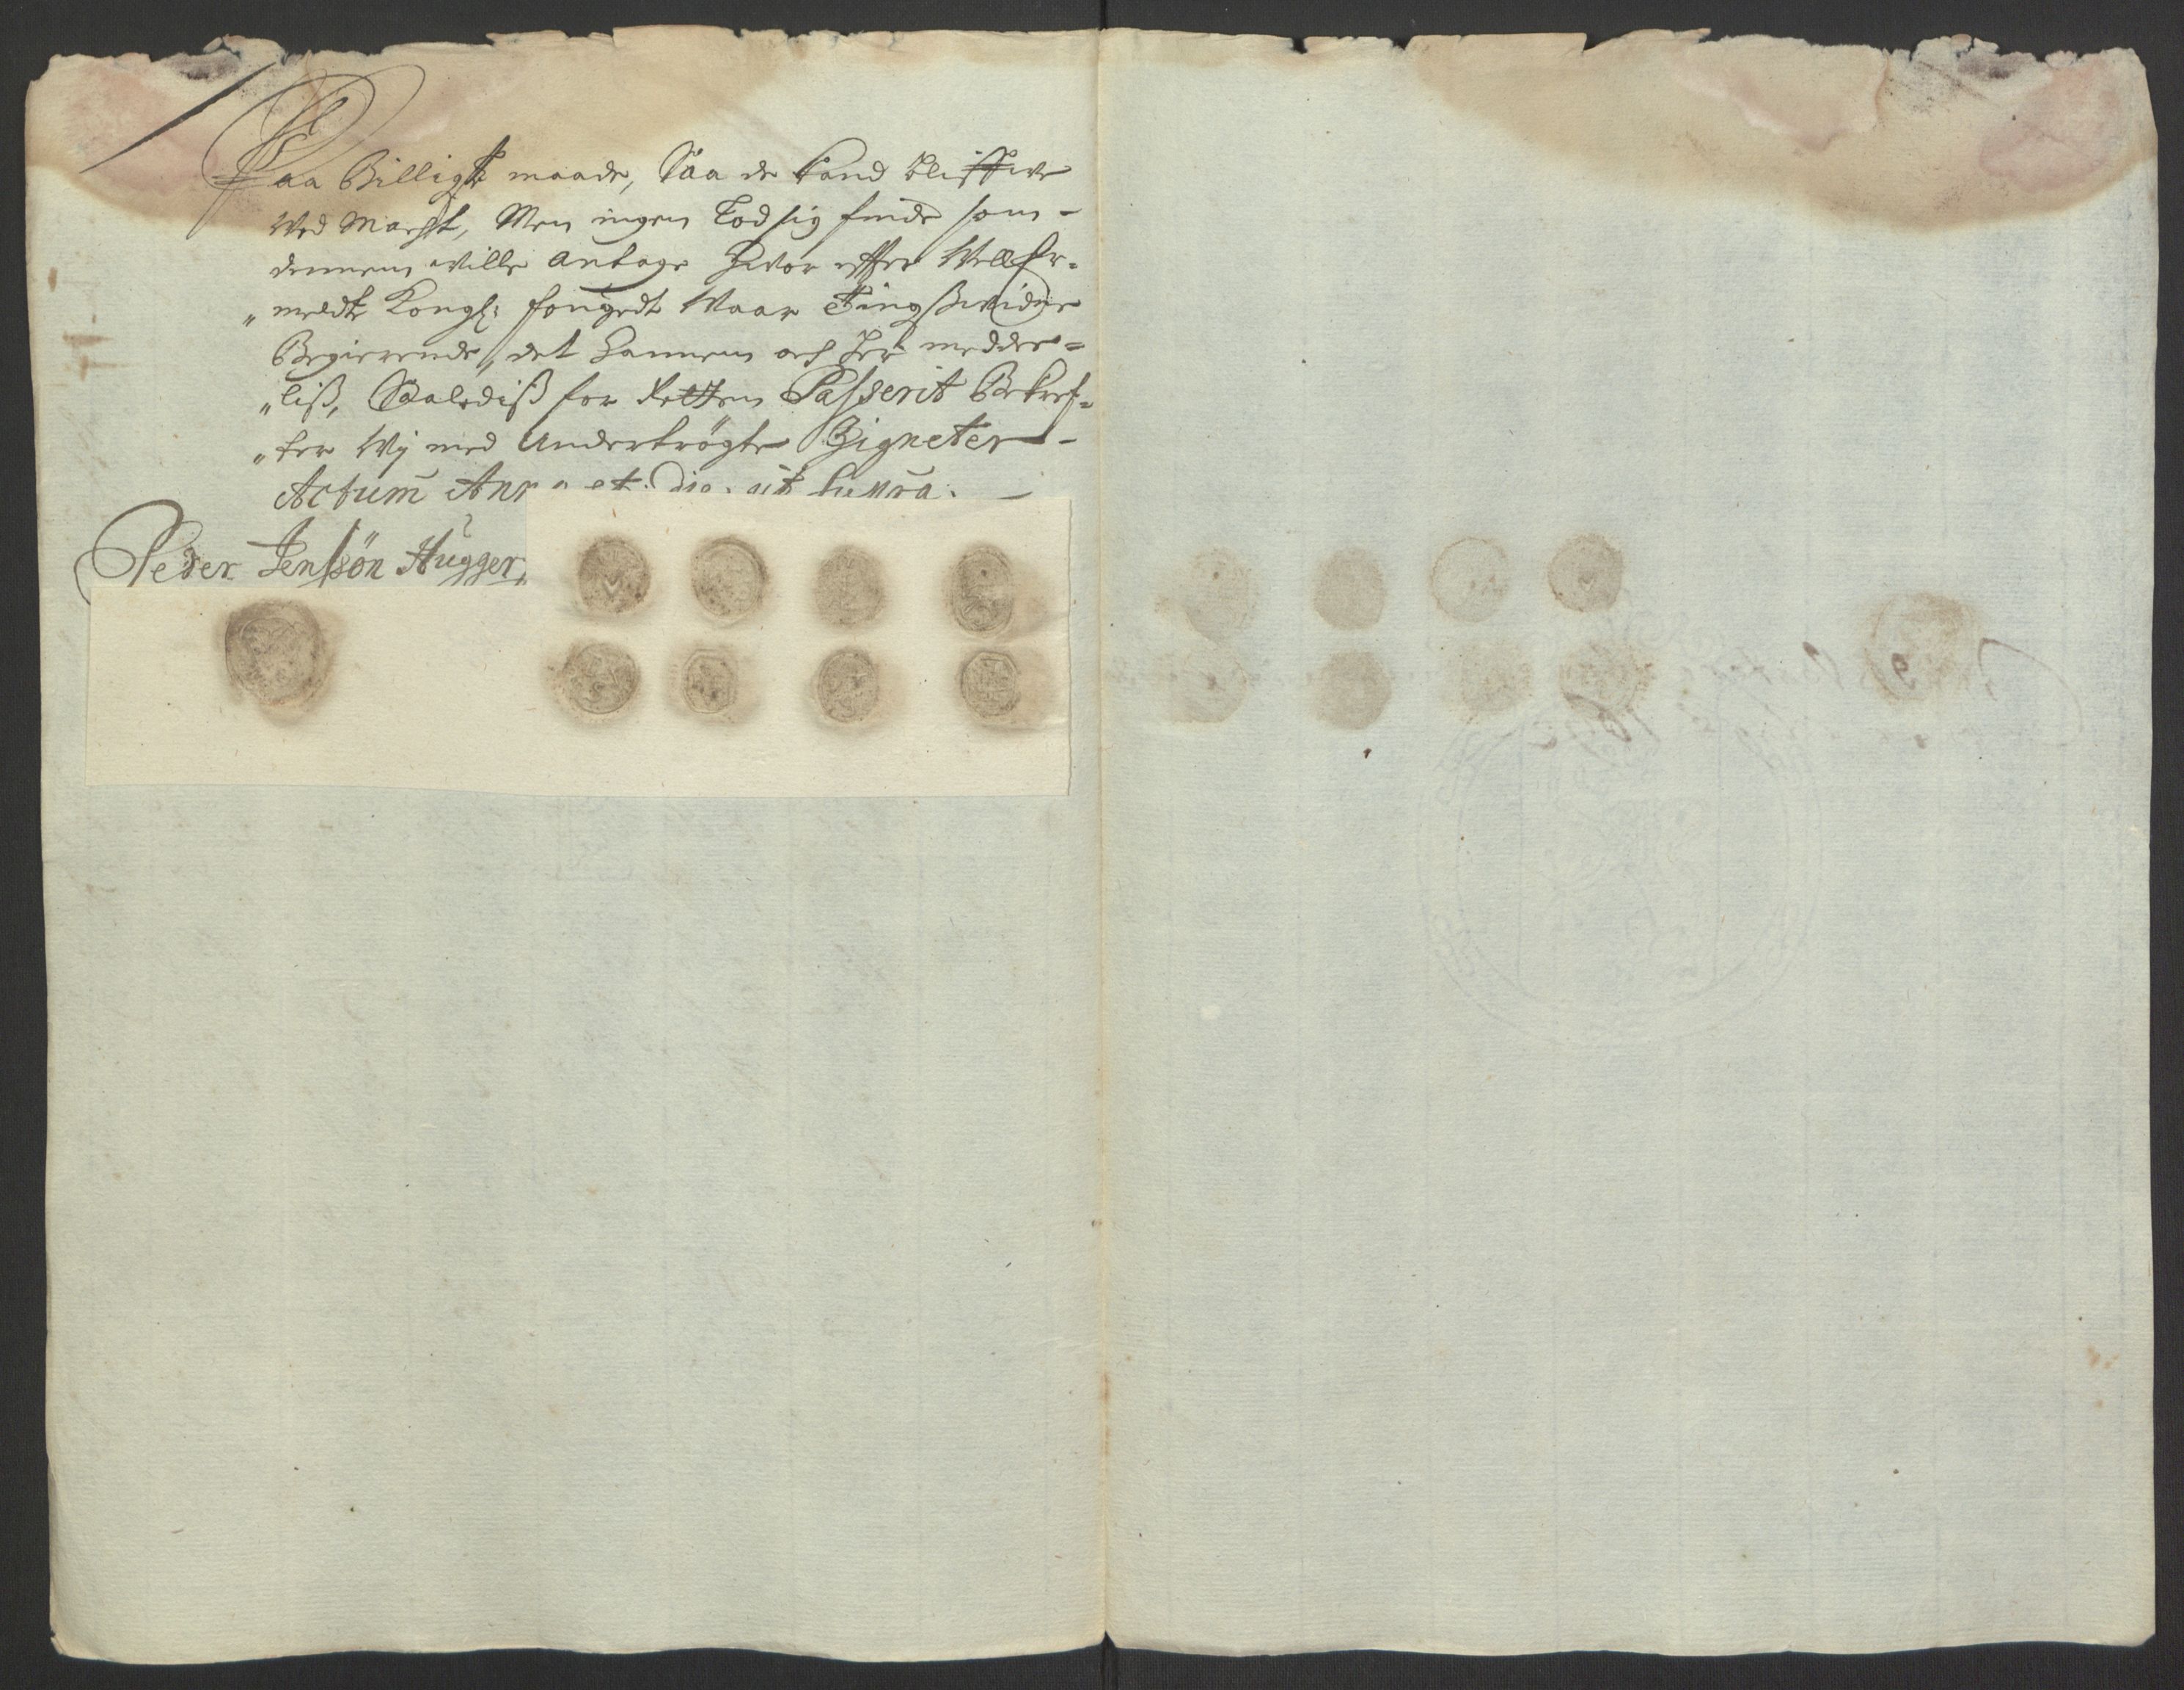 Paa Billigste maade, Saa de kand bliffwe
Wed Macht, Men ingen Lod sig finde som -
dennem wille antage Hwor effter Welbe-
„meldte Kongl: fougedt Waar Tingsswidne
Begierende, det hannem och her meddee=
„liss, Saalediss for Retten Passerit Bekref=
„ter Wij med Undertrögte Zigneter -
Actum Anno et. die. ut supra. -
Peder Jenssön Hugger,